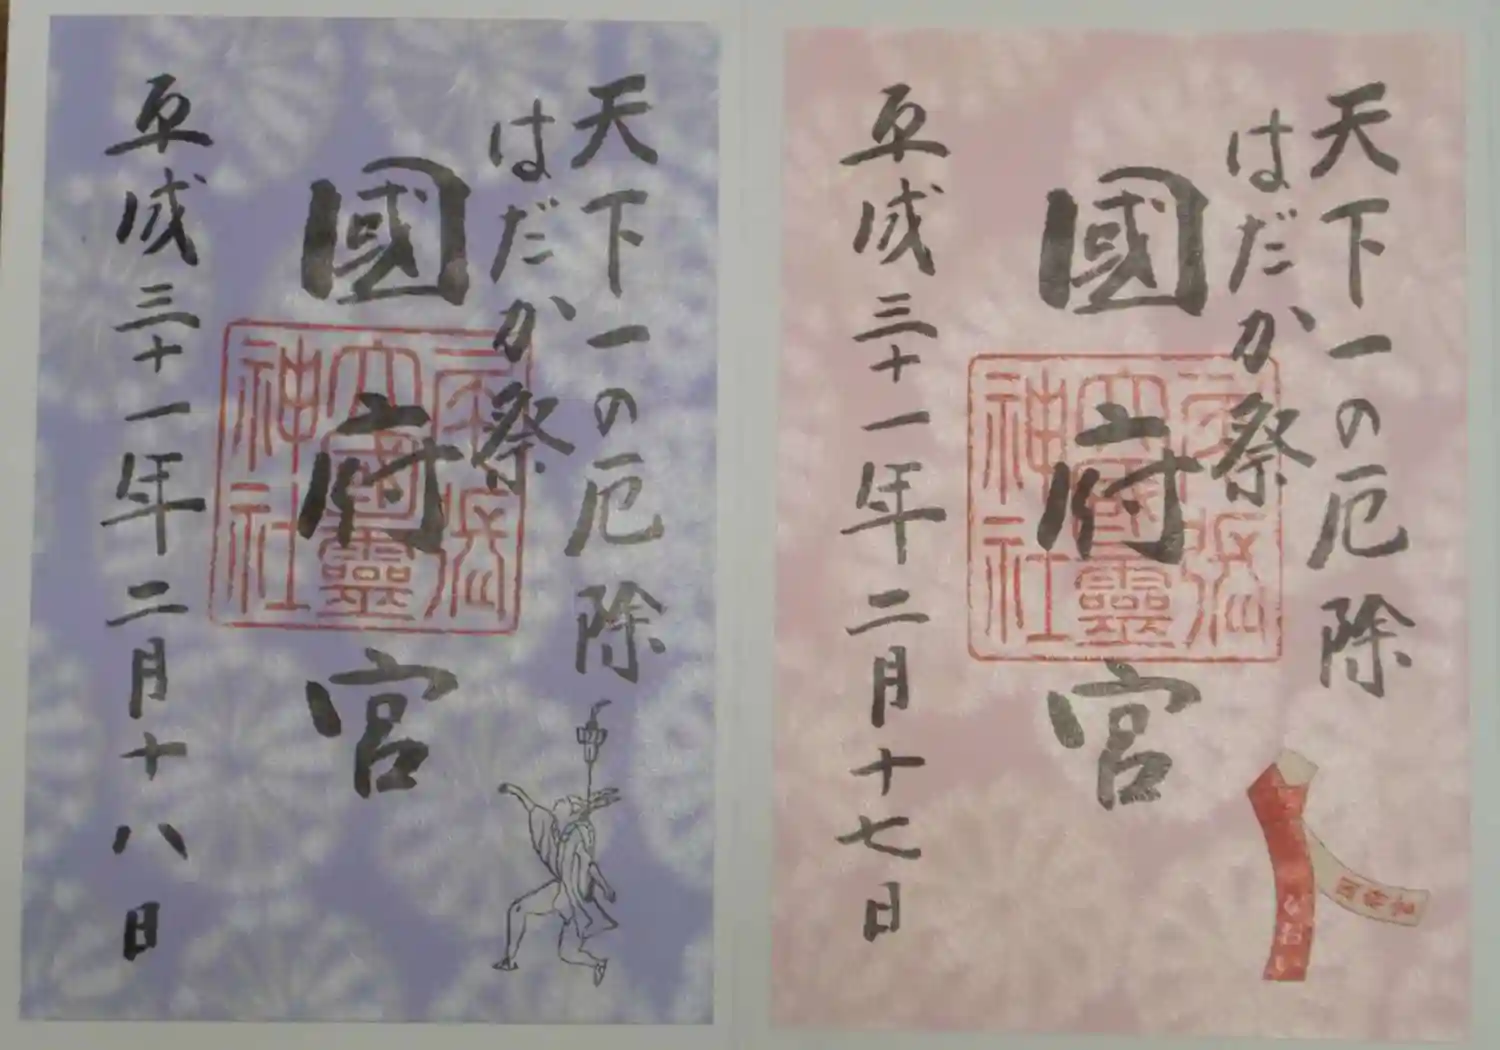 天下一の厄除
はだか祭
國府宮
尾張
大國霊
神社
平成三十一年二月十七日
天下一の厄除
はだか祭
國府宮
尾張
大國霊
神社
平成三十一年二月十八日